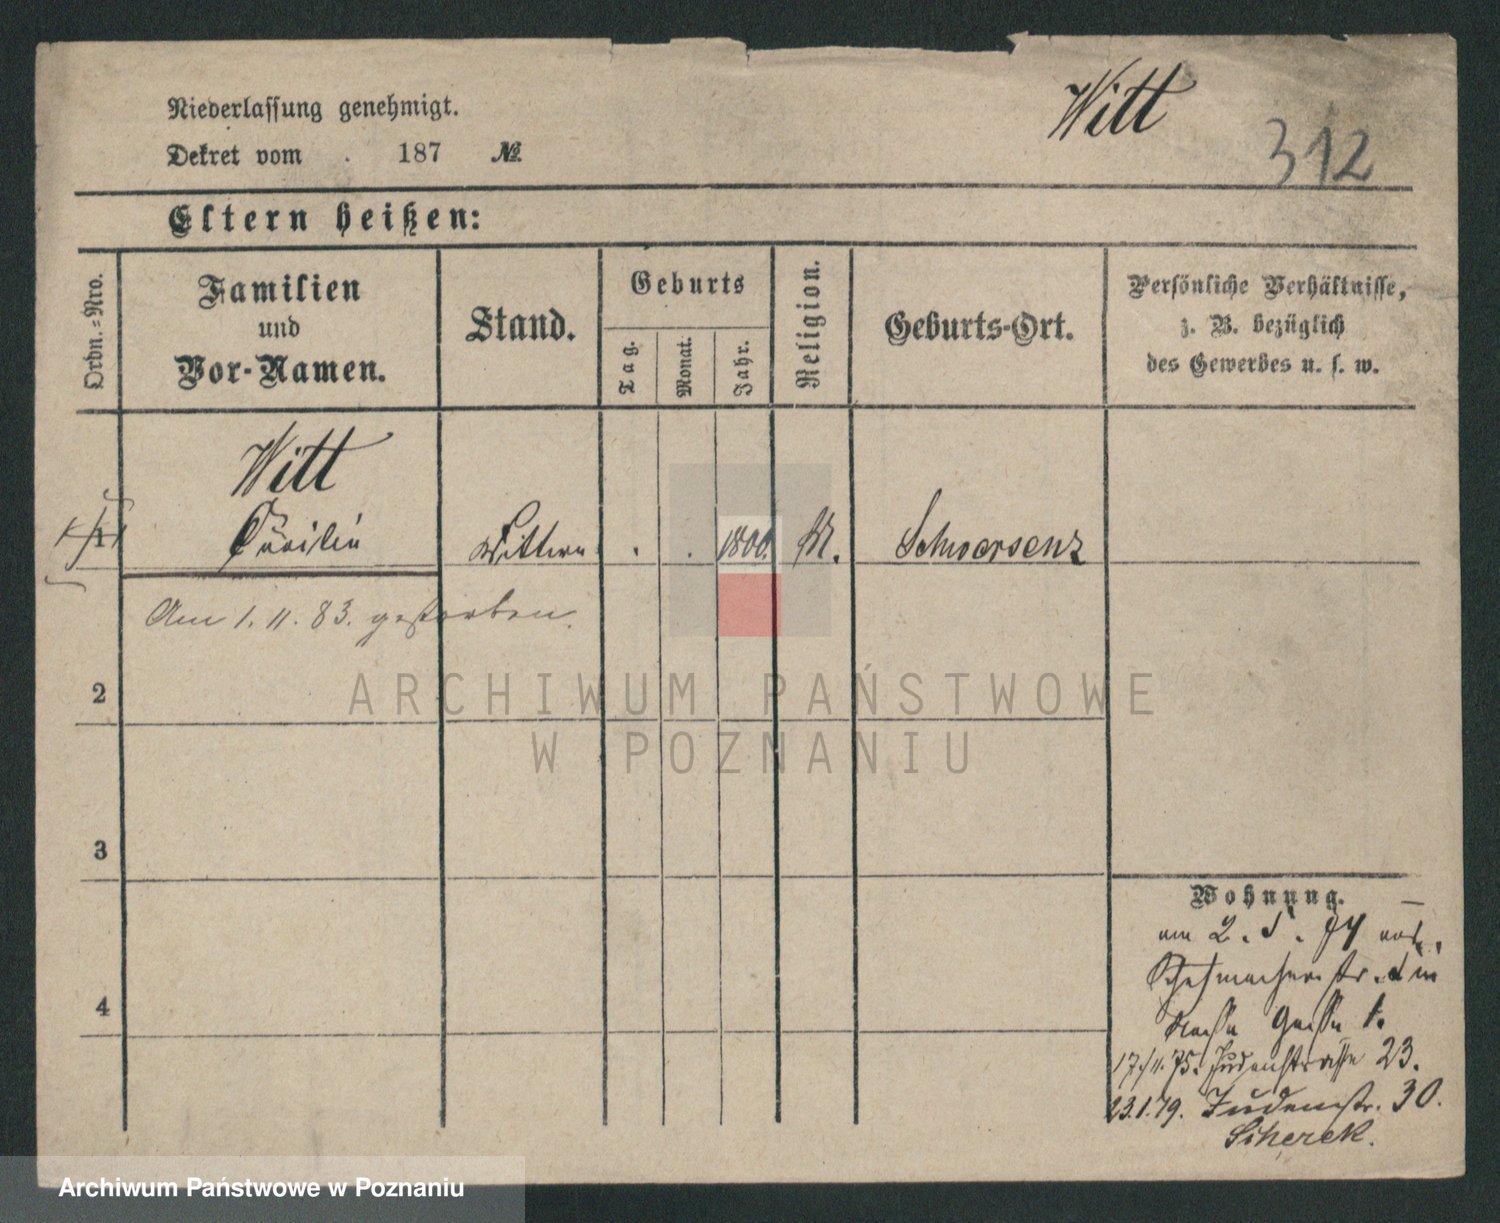 Niederlassung genehmigt.
Dekret vom . 187 №
Witt
312
Eltern heißen:
Ordn.=Nro.
Familien
und
Vor-Namen.
Stand.
Geburts
Tag.
Monat.
Jahr.
Religion.
Geburts-Ort.
Persönliche Verhältnisse,
z. B. bezüglich
des Gewerbes u. s. w.
Witt
1 Cäcilie Wittwe . . 1800. M. Schwersenz
Am 1. 11. 83. gestorben.
2
3
4
Wohnung.
am 2. 74 von
str. in
Nasse Gasse 1.
17/11. 75. Judenstrasse 23.
23.1.79. Judenstr. 30.
Scherek.
ARCHIWUM PAŃSTWOWE
W POZNANIU
Archiwum Państwowe w Poznaniu